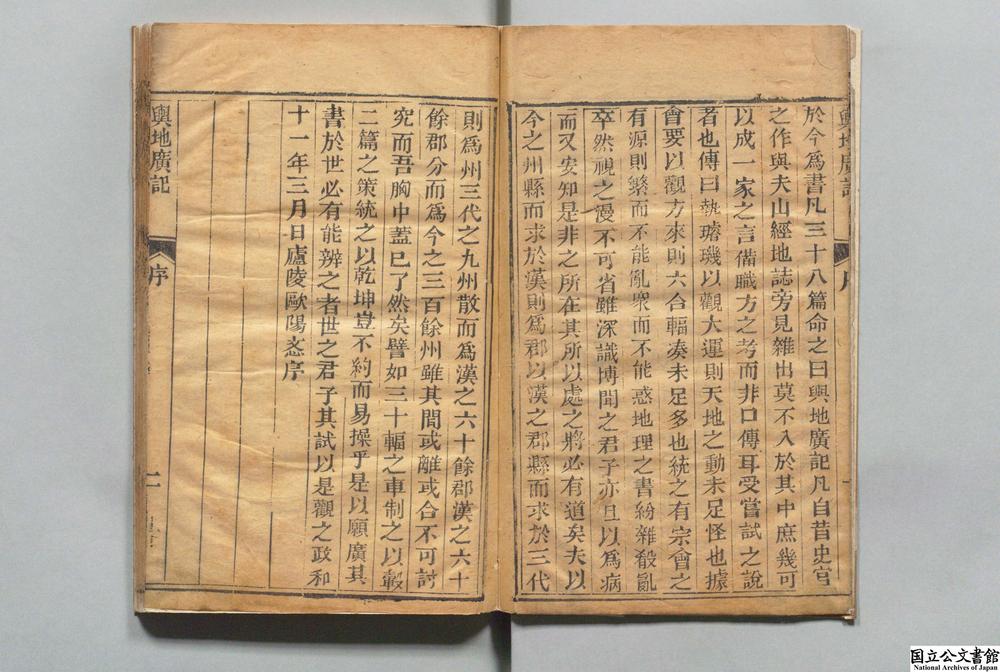 於今爲書凡三十八篇命之曰輿地廣記凡自昔史官
之作與夫山經地誌旁見雜出莫不入於其中庶幾可
以成一家之言備職方之考而非口傳耳受嘗試之說
者也傳曰執璿璣以觀大運則天地之動未足怪也據
會要以觀方來則六合輻湊未足多也統之有宗會之
有源則繁而不能亂衆而不能惑地理之書紛雜殽亂
卒然視之漫不可省雖深識博聞之君子亦且以爲病
而又安知是非之所在其所以處之將必有道矣夫以
今之州縣而求於漢則爲郡以漢之郡縣而求於三代
則爲州三代之九州散而爲漢之六十餘郡漢之六十
餘郡分而爲今之三百餘州雖其間或離或合不可討
究而吾胸中蓋已了然矣譬如三十輻之車制之以轂
二篇之策統之以乾坤豈不約而易操乎是以願廣其
書於世必有能辨之者世之君子其試以是觀之政和
十一年三月日廬陵歐陽忞序
輿地廣記
序
二
国立公文書館
National Archives of Japan